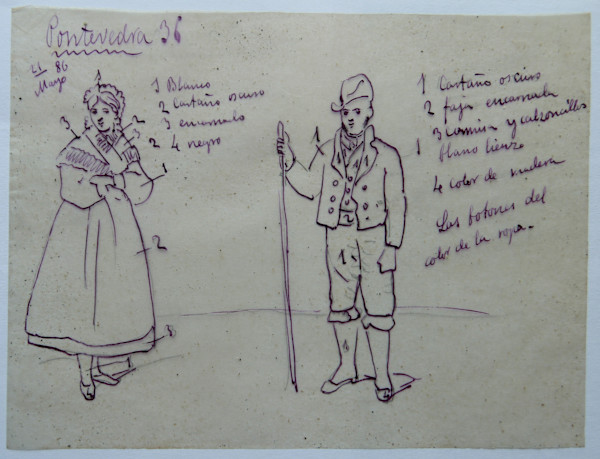 Pontevedra 36
21 86
Mayo
1 Blanco
2 Castaño oscuro
3 encarnado
4 negro
1 Castaño oscuro
2 faja encarnada
3 Camisa y calzoncillos
blanco lienzo
4 color de madera
Los botones del
color de la ropa.
1
3
2
2
1
2
3
1
1
1
1
2
1
4